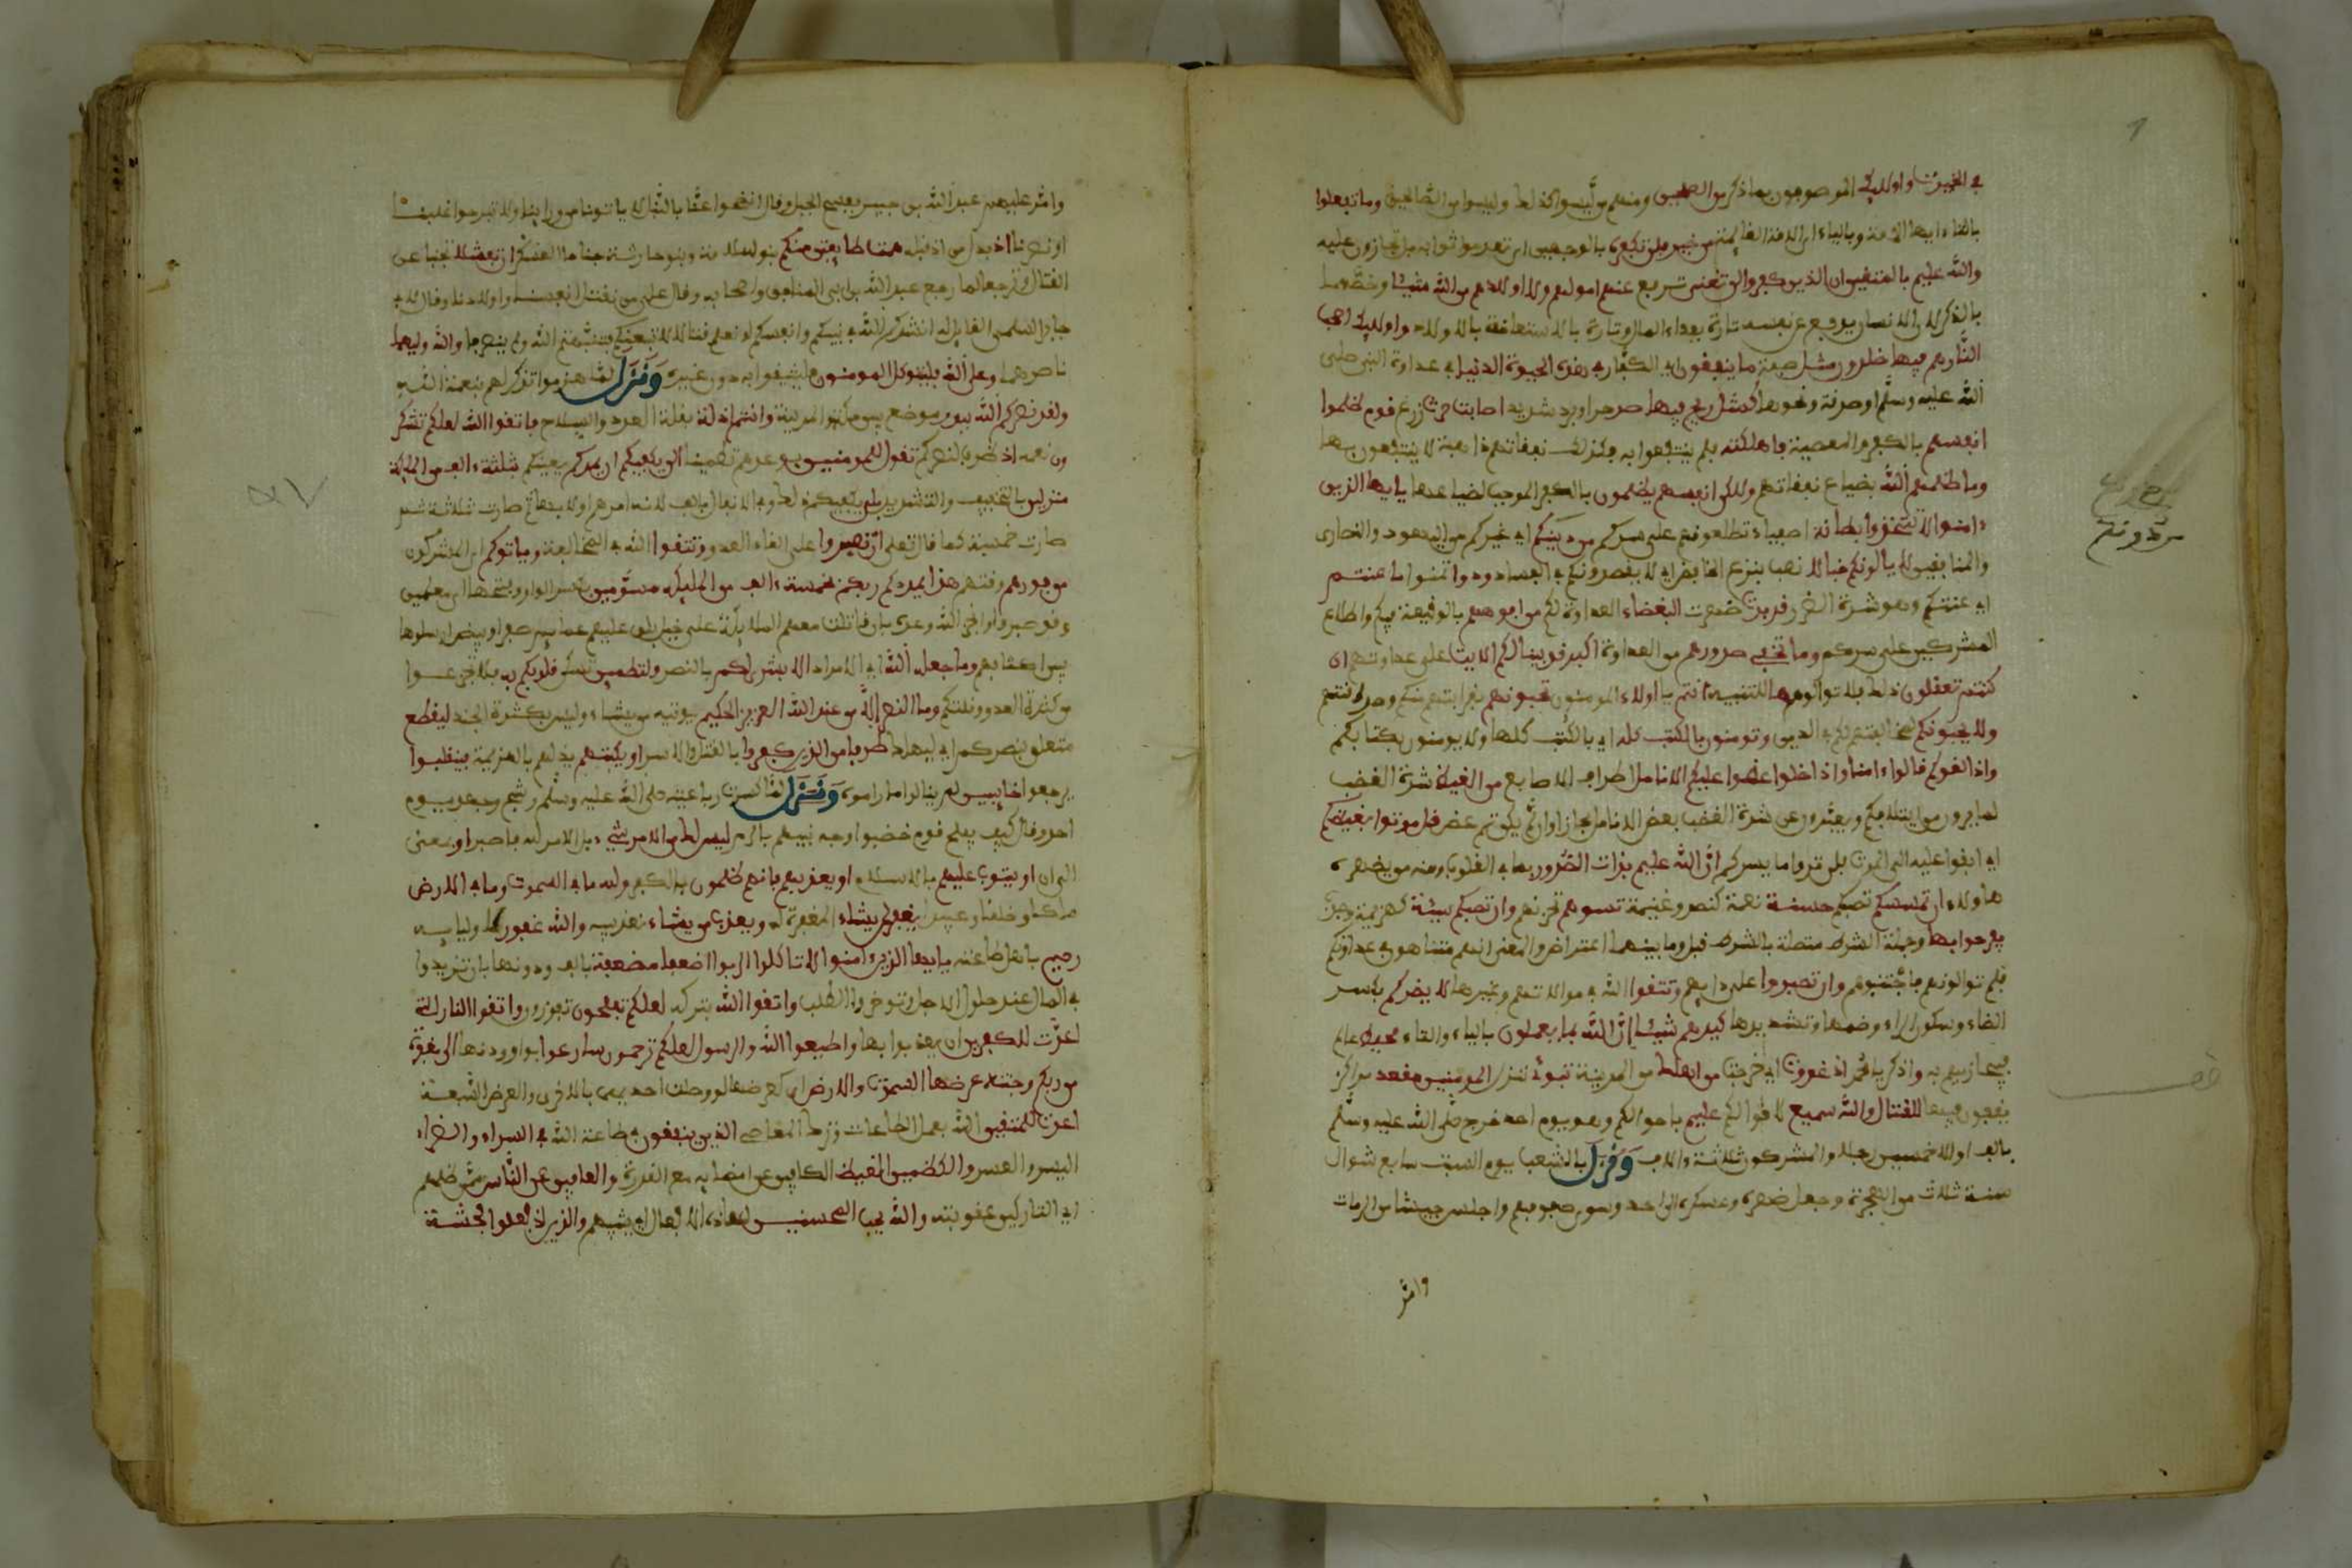 في الخيرت واوليك الموصوفون بما ذكر من الصلحين ومنهم من ليسوا كذلك وليسوا من الصالحين وما تفعلوا
بالتاء ايها الامة وبالياء اي الامة القايمة من خير فلن تكفروه بالوجهين اي تعدموا ثوابه بل تجازون عليه
والله عليم بالمتقين ان الذين كفروا لن تغني تدفع عنهم امولهم ولا اولادهم من الله شيئا وخصهما
بالذكر لان الانسان يدفع عن نفسه تارة بفداء المال وتارة بالاستعانة بالاولاد واوليك اصحب
النار هم فيها خلدون مثل صفة ما ينفقون اي الكفار في هذه الحيوة الدنيا في عداوة النبي صلى
الله عليه وسلم او صدقة ونحوها كمثل ريح فيها صر حر او برد شديد اصابت حرث زرع قوم ظلموا
انفسهم بالكفر والمعصية فاهلكته فلم ينتفعوا به فكذلك نفقاتهم ذاهبة لا ينتفعون بها
وما ظلمهم الله بضياع نفقاتهم ولكن انفسهم يظلمون بالكفر الموجب لضياعها يايها الذين
ءامنوا لا تتخذوا بطانة اصفياء تطلعونهم على سركم من دونكم اي غيركم من اليهود والنصارى
والمنافقين لا يالونكم خبالا نصب بنزع الخافض اي لا يقصرون لكم في الفساد ودوا تمنوا ما عنتم
اي عنتكم وهو شدة الضرر قد بدت ظهرت البغضاء العداوة لكم من افوههم بالوقيعة فيكم واطلاع
المشركين على سركم وما تخفي صدورهم من العداوة اكبر قد بينا لكم الايت على عداوتهم ان
كنتم تعقلون ذلك فلا توالوهم ها للتنبيه انتم يا اولاء المومنون تحبونهم لقرابتهم منكم وصداقتهم
ولا يحبونكم لمخالفتهم لكم في الدين وتومنون بالكتب كله اي بالكتب كلها ولا يومنون بكتابكم
واذا لقوكم قالوا ءامنا واذا خلوا عضوا عليكم الانامل اطراف الاصابع من الغيظ شدة الغضب
لما يرون من ايتلافكم ويعبر عن شدة الغضب بعض الانامل مجازا وان لم يكن ثم عض قل موتوا بغيظكم
اي ابقوا عليه الى الموت فلن تروا ما يسركم ان الله عليم بذات الصدور بما في القلوب ومنه ما يضمره
هاولاء ان تمسسكم تصبكم حسنة نعمة كنصر وغنيمة تسوهم تحزنهم وان تصبكم سيئة كهزيمة وجدب
يفرحوا بها وجملة الشرط متصلة بالشرط قبل وما بينهما اعتراض والمعنى انهم متناهون في عداوتكم
فلم توالونهم فاجتنبوهم وان تصبروا على اذايهم وتتقوا الله في موالاتهم وغيرها لا يضركم بكسر
الضاد وسكون الراء وضمها وتشديدها كيدهم شيئا ان الله بما يعملون بالياء والتاء محيط عالم
فيجازيهم به واذكر يا محمد اذ غدوت اي خرجت من اهلك من المدينة تبوئ تنزل المومنين مقعد مراكز
يقفون فيها للقتال والله سميع لاقوالكم عليم باحوالكم وهو يوم احد خرج صلى الله عليه وسلم
بالف او الا خمسين رجلا والمشركون ثلاثة ءالاف ونزل بالشعب يوم السبت سابع شوال
سنة ثلاث من الهجرة وجعل ظهره وعسكره الى احد وسوى صفوفهم واجلس جيشا من الرمات
وامر
وامر عليهم عبد الله بن جبير بسفح الجبل وقال انضحوا عنا بالنبل لا ياتونا من ورائنا ولا تبرحوا غلبنا
او نصرنا اذ بدل من اذ قبله همت طايفتن منكم بنو سلمة وبنو حارثة جناحا العسكر ان تفشلا تجبنا عن
القتال وترجعا لما رجع عبد الله بن ابي المنافق واصحابه وقال على من نقتل انفسنا واولادنا وقال لابي
جابر السلمي القايل له انشدكم الله في نبيكم وانفسكم لو نعلم قتالا لاتبعنكم فثبتهم الله ولم ينصرفا والله وليهما
ناصرهما وعلى الله فليتوكل المومنون ليثقوا به دون غيره ونزل لما هزموا تذكيرا لهم بنعمة الله
ولقد نصركم الله ببدر موضع بين مكة والمدينة وانتم اذلة بقلة العدد والسلاح فاتقوا الله لعلكم تشكر
ون نعمه اذ ظرف لنصركم تقول للمومنين بوعدهم تطمينا الن يكفيكم ان يمدكم يعينكم بثلثة ءالف من المليكة
منزلين بالتخفيف والتشديد بلى يكفيكم ذلك وفي الانفال بالف لانه امدهم اولا بها ثم صارت ثلاثة ثم
صارت خمسة كما قال تعلى ان تصبروا على لقاء العدو وتتقوا الله في المخالفة وياتوكم اي المشركون
من فورهم وقتهم هذا يمددكم ربكم بخمسة ءالف من المليكة مسومين بكسر الواو وفتحها اي معلمين
وقد صبروا وانجز الله وعده بان قاتلت معهم الملايكة على خيل بلق عليهم عمايم صفر او بيض ارسلوها
بين اكتافهم وما جعله الله اي الامداد الا بشرى لكم بالنصر ولتطمين تسكن قلوبكم به فلا تجزعوا
من كثرة العدو وقلتكم وما النصر الا من عند الله العزيز الحكيم يوتيه من يشاء وليس بكثرة الجند ليقطع
متعلق بنصركم اي ليهلك طرفا من الذين كفروا بالقتل والاسر او يكبتهم يذلهم بالهزيمة فينقلبوا
يرجعوا خايبين لم ينالوا ما راموه ونزل لما كسرت رباعيته صلى الله عليه وسلم وشج وجهه يوم
احد وقال كيف يفلح قوم خضبوا وجه نبيهم بالدم ليس لك من الامر شيء بل الامر لله فاصبر او بمعنى
الى ان او يتوب عليهم بالاسلام او يعذبهم فانهم ظلمون بالكفر ولله ما في السموت وما في الارض
ملكا وخلقا وعبيدا يغفر لمن يشاء المغفرة له ويعذب من يشاء تعذيبه والله غفور لاوليايه
رحيم باهل طاعته يايها الذين امنوا لا تاكلوا الربوا اضعفا مضعفة بالف ودونها بان تزيدوا
في المال عند حلول الاجل وتوخروا الطلب واتقوا الله بتركه لعلكم تفلحون تفوزون واتقوا النار التي
اعدت للكفرين ان يعذبوا بها واطيعوا الله والرسول لعلكم ترحمون سارعوا بواو ودونها الى مغفرة
من ربكم وجنة عرضها السموت والارض اي كعرضهما لو وصلت احديهما بالاخرى والعرض السعة
اعدت للمتقين الله بعمل الطاعات وترك المعاصي الذين ينفقون في طاعة الله في السراء والضراء
اليسر والعسر والكظمين الغيظ الكافين عن امضايه مع القدرة والعافين عن الناس ممن ظلمهم
اي التاركين عقوبته والله يحب المحسنين بهذه الافعال اي يثيبهم والذين اذا فعلوا فحشة